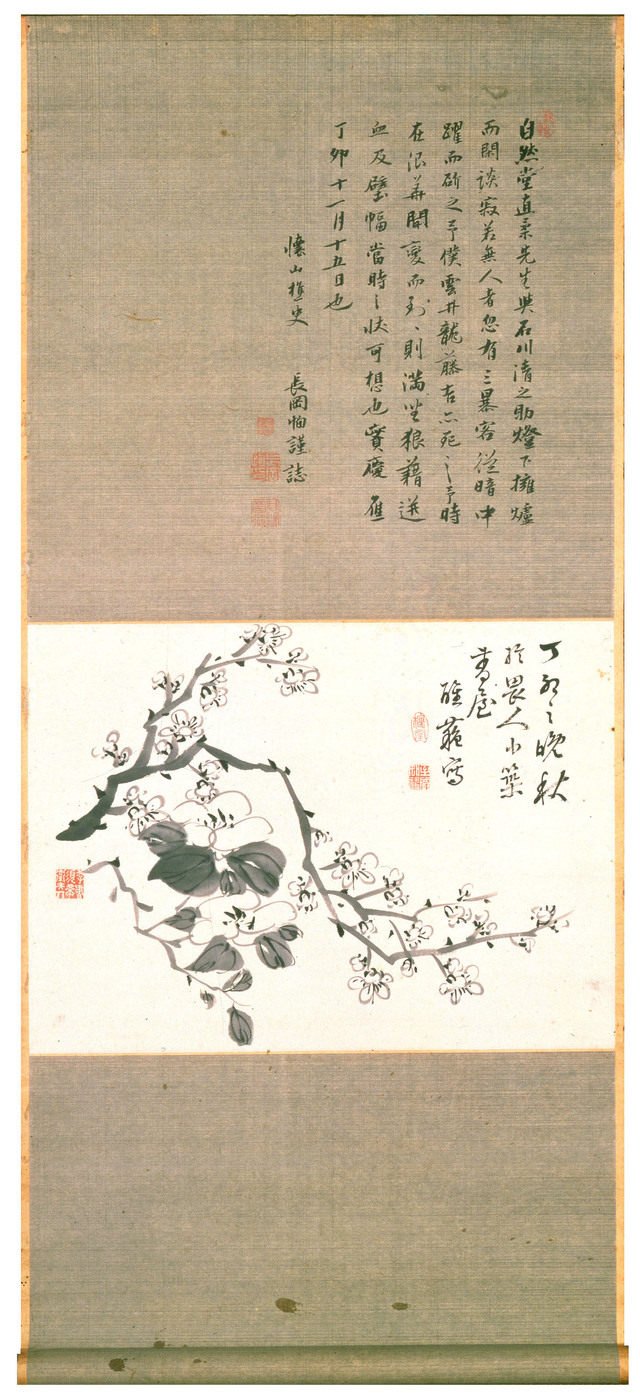 自然堂直柔先生與石川清之助燈下擁爐
而閑談寂若無人者忽有三暴客從暗中
躍而斫之予僕雲井龍藤吉亦死之予時
在浪華聞變而到々則滿坐狼藉迸
血及壁幅當時之狀可想也實慶應
丁卯十一月十五日也
懐山樵史 長岡恂謹誌
丁卯之晩秋
於畏人小築
書屋
寫